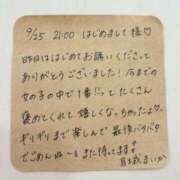 9/25 21:00 はじめまして様♡
昨日ははじめてお誘いくださって
ありがとうございました！今までの
女の子の中で1番!!ってたくさん
褒めてくれて嬉しくなっちゃったよ♡
ギリギリまで楽しんで最後バタバタ
でごめんね〜! また待ってます♡
まいか